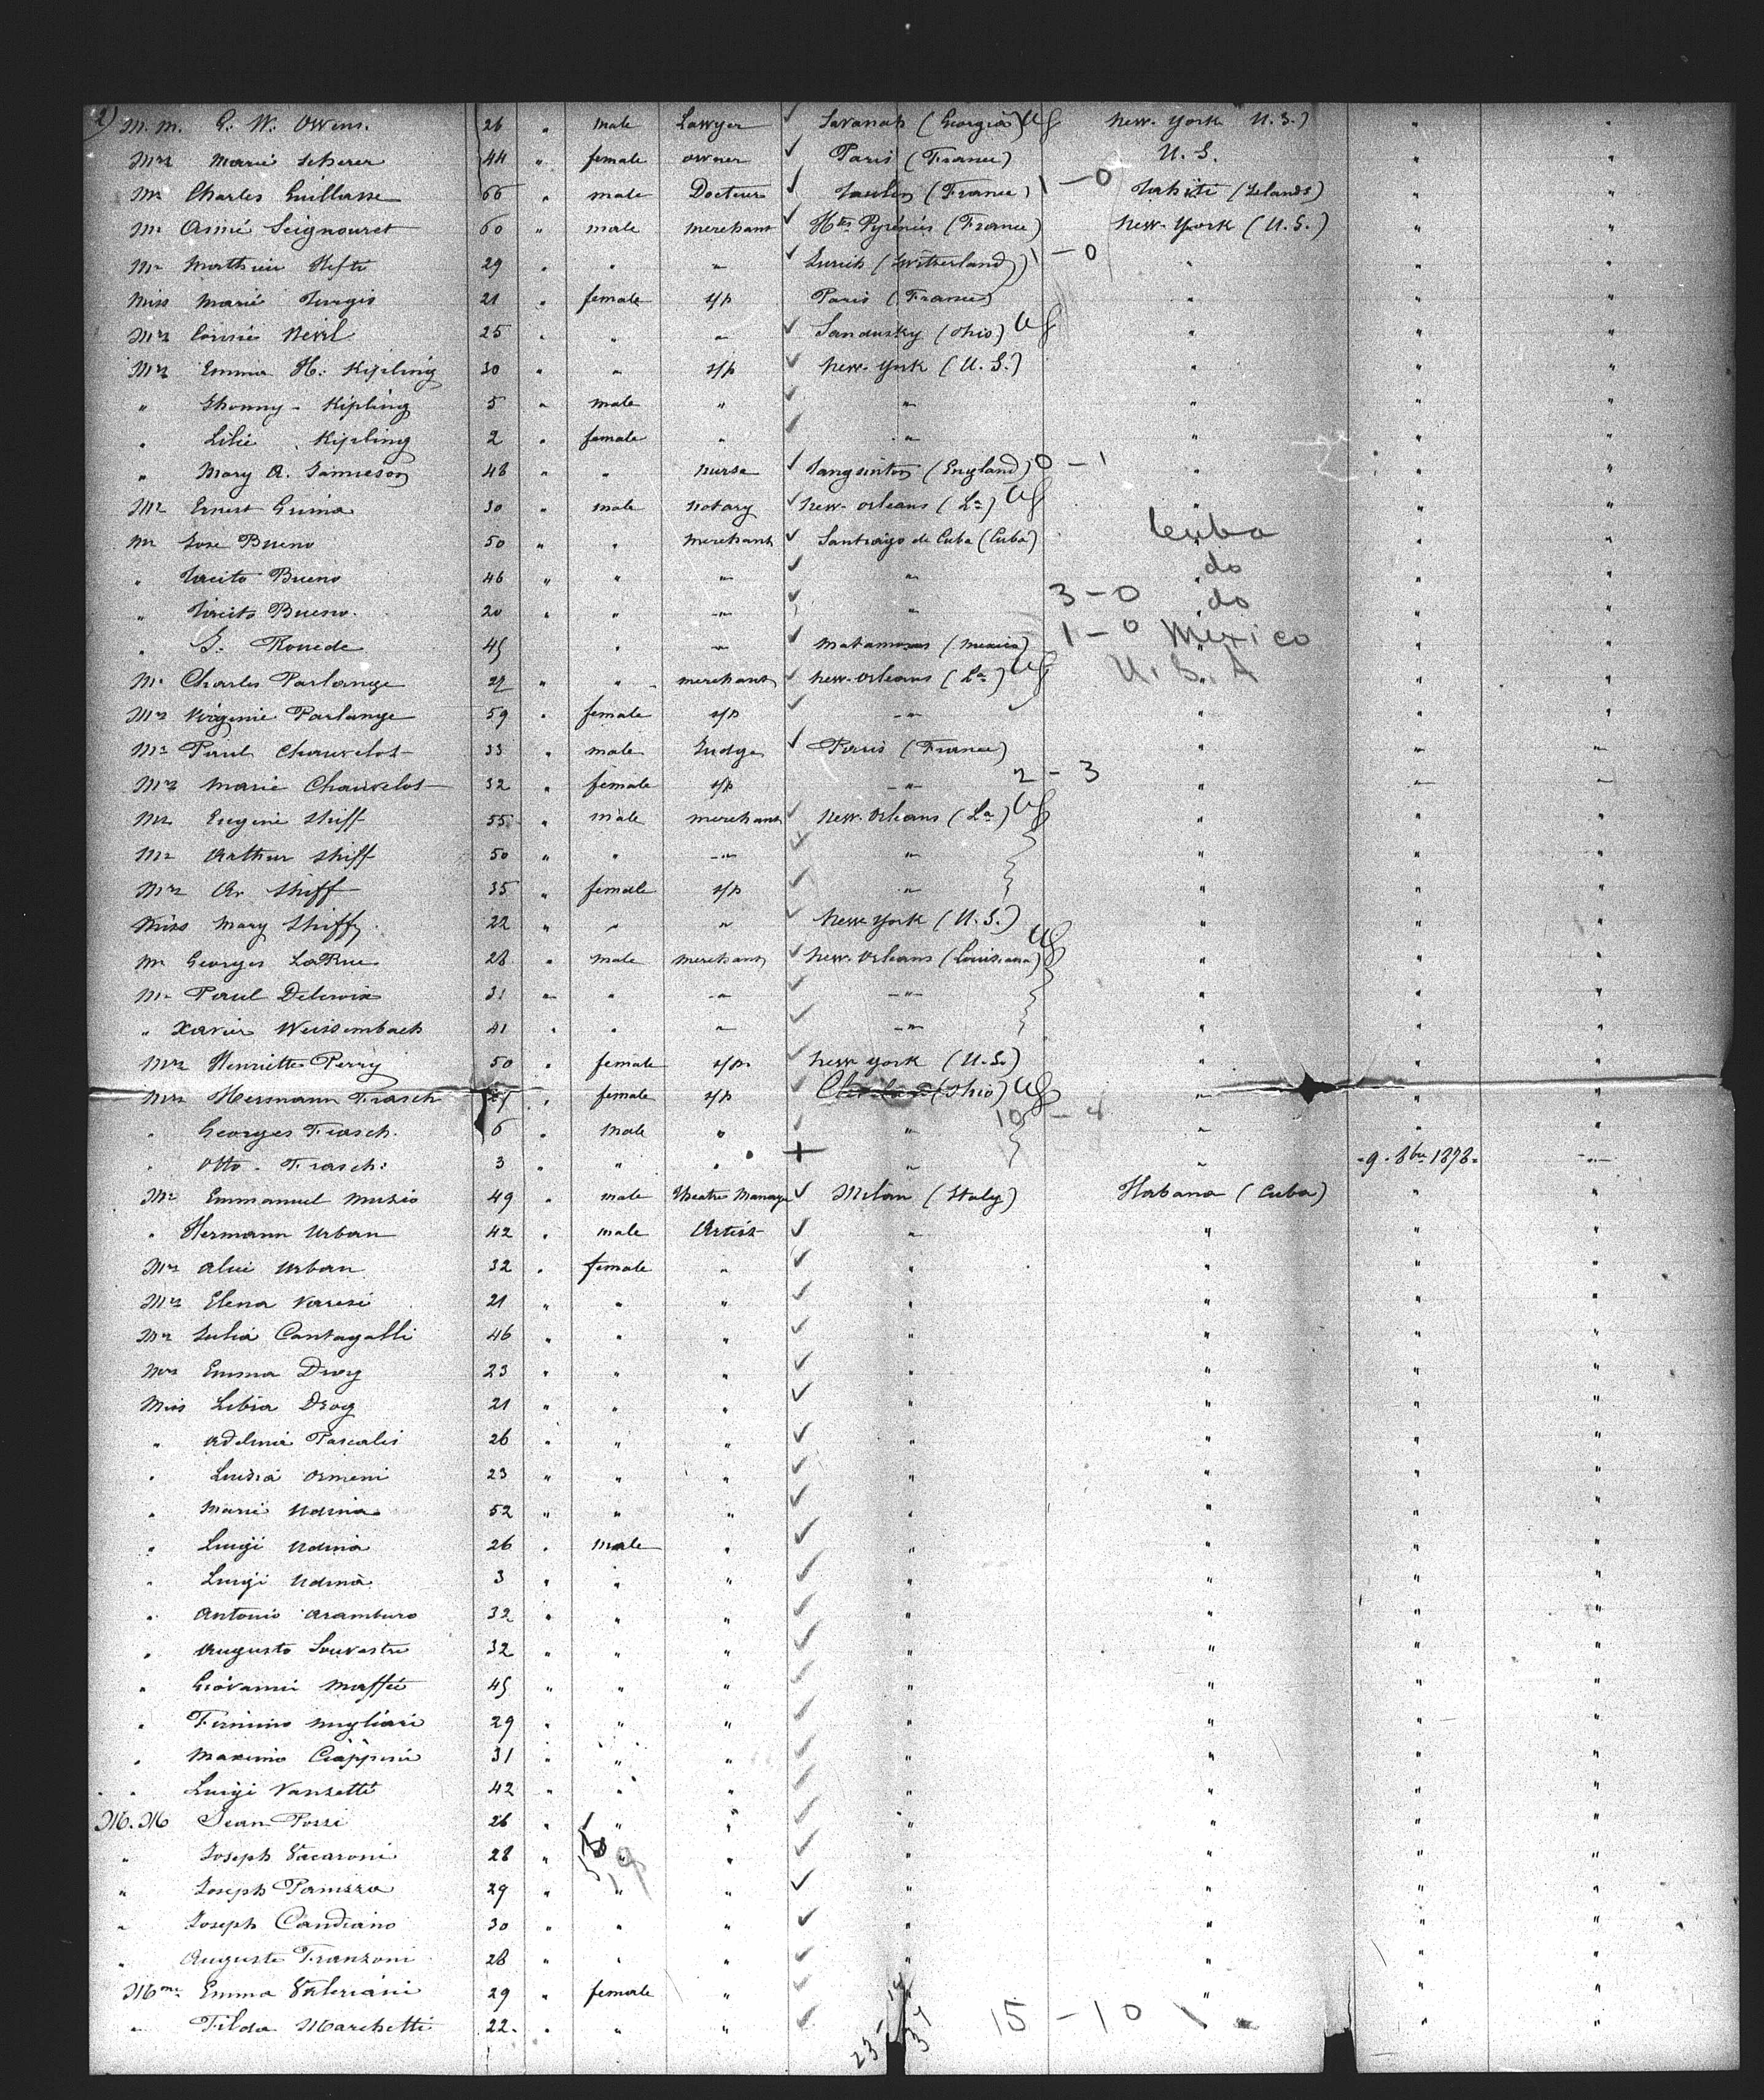 2) M. M. G. W. Owens. 26 " male Lawyer ✓ Savanah (Georgia) New-York U.S.) " "
Mrs Marié Scherer 44 " female owner ✓ Paris (France) U.S. " "
Mr Charles Guillasse 66 " male Docteur ✓ (France) 1-0 Tahiti (Islands) " "
Mr Aimé Seignouret 60 " male merchant ✓ Htes Pyrénées (France) New-York (U.S.) " "
Mr Mathieu Hefti 29 " " " ✓ Zurich (Switherland) 1-0 " " "
Miss Marié Turgis 21 " female s/p Paris (France) " " "
Mrs 25 " " " ✓ Sandusky (Ohio) " " "
Mrs Emma H. Kipling 30 " " s/p ✓ New-York (U.S.) " " "
" Jhonny - Kipling 5 " male " ✓ " " " "
" Lilie Kipling 2 " female " ✓ " " " "
" Mary A. Jamieson 48 " " nurse ✓ (England) 0-1 " " "
Mr Ernest Grima 30 " male notary ✓ New-Orleans (La) " " "
Mr Jose Bueno 50 " " merchant ✓ Santiago de Cuba (Cuba) Cuba " "
" Tacito Bueno 46 " " " ✓ " do " "
" Tacito Bueno. 20 " " " ✓ " 3-0 do " "
" G. Rouede 45 " " ✓ Matamoras (Mexico) 1-0 Mexico " "
Mr Charles Parlange 27 " " merchant ✓ New-Orleans (La) U.S.A " "
Mrs Virginie Parlange 59 " female s/p ✓ " " " "
Mr Paul Chauvelot 33 " male Judge ✓ Paris (France) " " "
Mrs Marie Chauvelot 32 " female s/p " 2-3 " " "
Mr Eugene Shiff 55 " male merchant ✓ New-Orleans (La) " " "
Mr Arthur Shiff 50 " " " ✓ " " " "
Mrs Ar Shiff 35 " female s/p ✓ " " " "
Miss Mary Shiff 22 " " " ✓ New-York (U.S.) " " "
Mr Georges LaRue 28 " male merchant ✓ New-Orleans (Louisiana) " " "
Mr Paul Delvoix 31 " " " ✓ " " " "
" Xavier Weissenbach 41 " " " ✓ " " " "
Mrs Henriette Perry 50 " female s/p. ✓ New York (U.S.) " " "
Mrs Hermann Frasch 27 " female s/p ✓ (Ohio) " " "
" Georges Frasch. 6 " male " ✓ " 10-4 " " "
" Otto - Frasch: 3 " " " + " " 9. 8bre 1878. "
Mr Emmanuel Muzio 49 " male Theatre Manager ✓ Milan (Italy) Habana (Cuba) " "
" Hermann Urban 42 " male Artist ✓ " " " "
Mrs Alice Urban 32 " female " ✓ " " " "
Mrs Elena Varesi 21 " " " ✓ " " " "
Mrs Julia Cantagalli 46 " " " ✓ " " " "
Mrs Emma Drog 23 " " " ✓ " " " "
Miss Libia Drog 21 " " " ✓ " " " "
" Adelina Pascalis 26 " " " ✓ " " " "
" Ludia Ormeni 23 " " " ✓ " " " "
" Marie Udina 52 " " " ✓ " " " "
" Luigi Udina 26 " male " ✓ " " " "
" Luigi Udina 3 " " " ✓ " " " "
" Antonio Aramburo 32 " " " ✓ " " " "
" Augusto Souvestre 32 " " " ✓ " " " "
" Giovanni Maffei 45 " " " ✓ " " " "
" Firmino Migliari 29 " " " ✓ " " " "
" Maximo Ciapini 31 " " " ✓ " " " "
" Luigi Vanzetti 42 " " " ✓ " " " "
M. M Jean Possi 26 " " " ✓ " " " "
" Joseph Vacaroni 28 " " " ✓ " " " "
" Joseph Panizza 29 " " " ✓ " " " "
" Joseph Candiano 30 " " " ✓ " " " "
" Auguste Franzoni 28 " " " ✓ " " " "
Mme Emma Valeriani 29 " female " ✓ " " " "
" Tilda Marchetti 22. " " " ✓ 15-10 " "
23-14
37